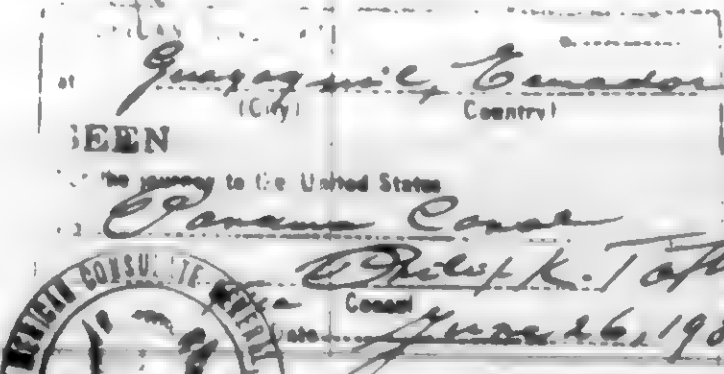 at Guayaquil, Ecuador
(City) Country)
SEEN
the journey to the United States
Panama Canal
Philip K. Taft
Consul
Date June 26, 19
AMERICAN CONSULATE GENERAL